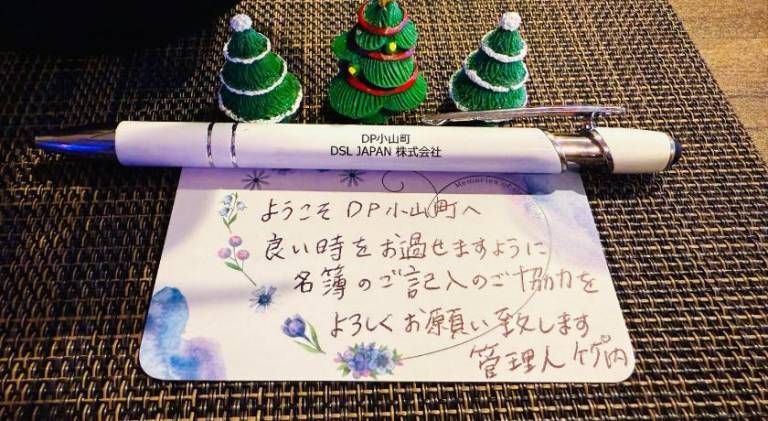 DP小山町
DSL JAPAN 株式会社
Memories of
ようこそ DP小山町へ
良い時をお過せますように
名簿のご記入のご協力を
よろしくお願い致します
管理人 竹内